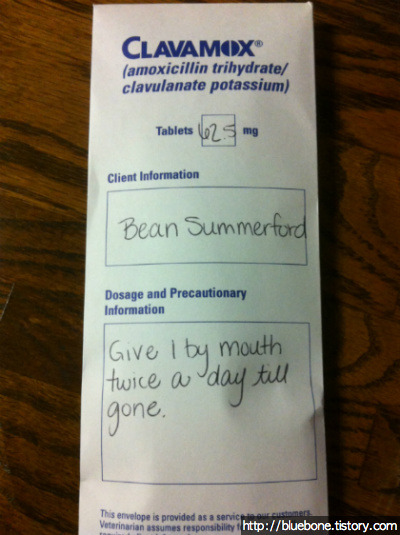 CLAVAMOX®
(amoxicillin trihydrate/
clavulanate potassium)
Tablets 62.5 mg
Client Information
Bean Summerford
Dosage and Precautionary
Information
Give 1 by mouth
twice a day till
gone.
This envelope is provided as a service to our customers.
Veterinarian assumes responsibility
http://bluebone.tistory.com